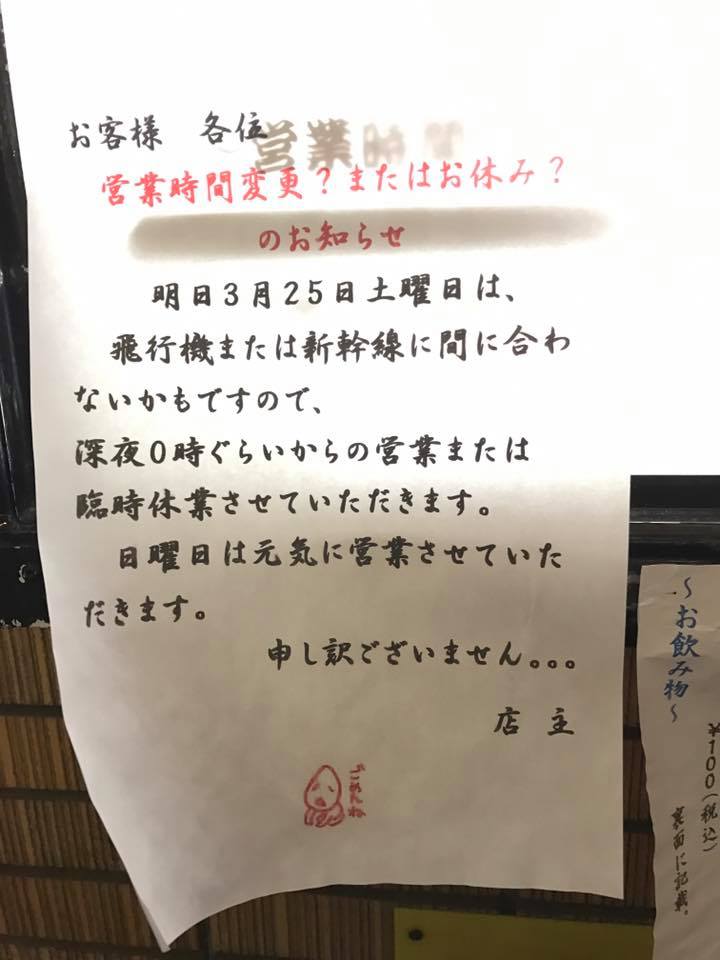 お客様　各位
営業時間変更？またはお休み？
のお知らせ
明日3月25日土曜日は、
飛行機または新幹線に間に合わ
ないかもですので、
深夜0時ぐらいからの営業または
臨時休業させていただきます。
日曜日は元気に営業させていた
だきます。
申し訳ございません。。。
店　主
ごめんね
～お飲み物～
¥100(税込)
裏面に記載。